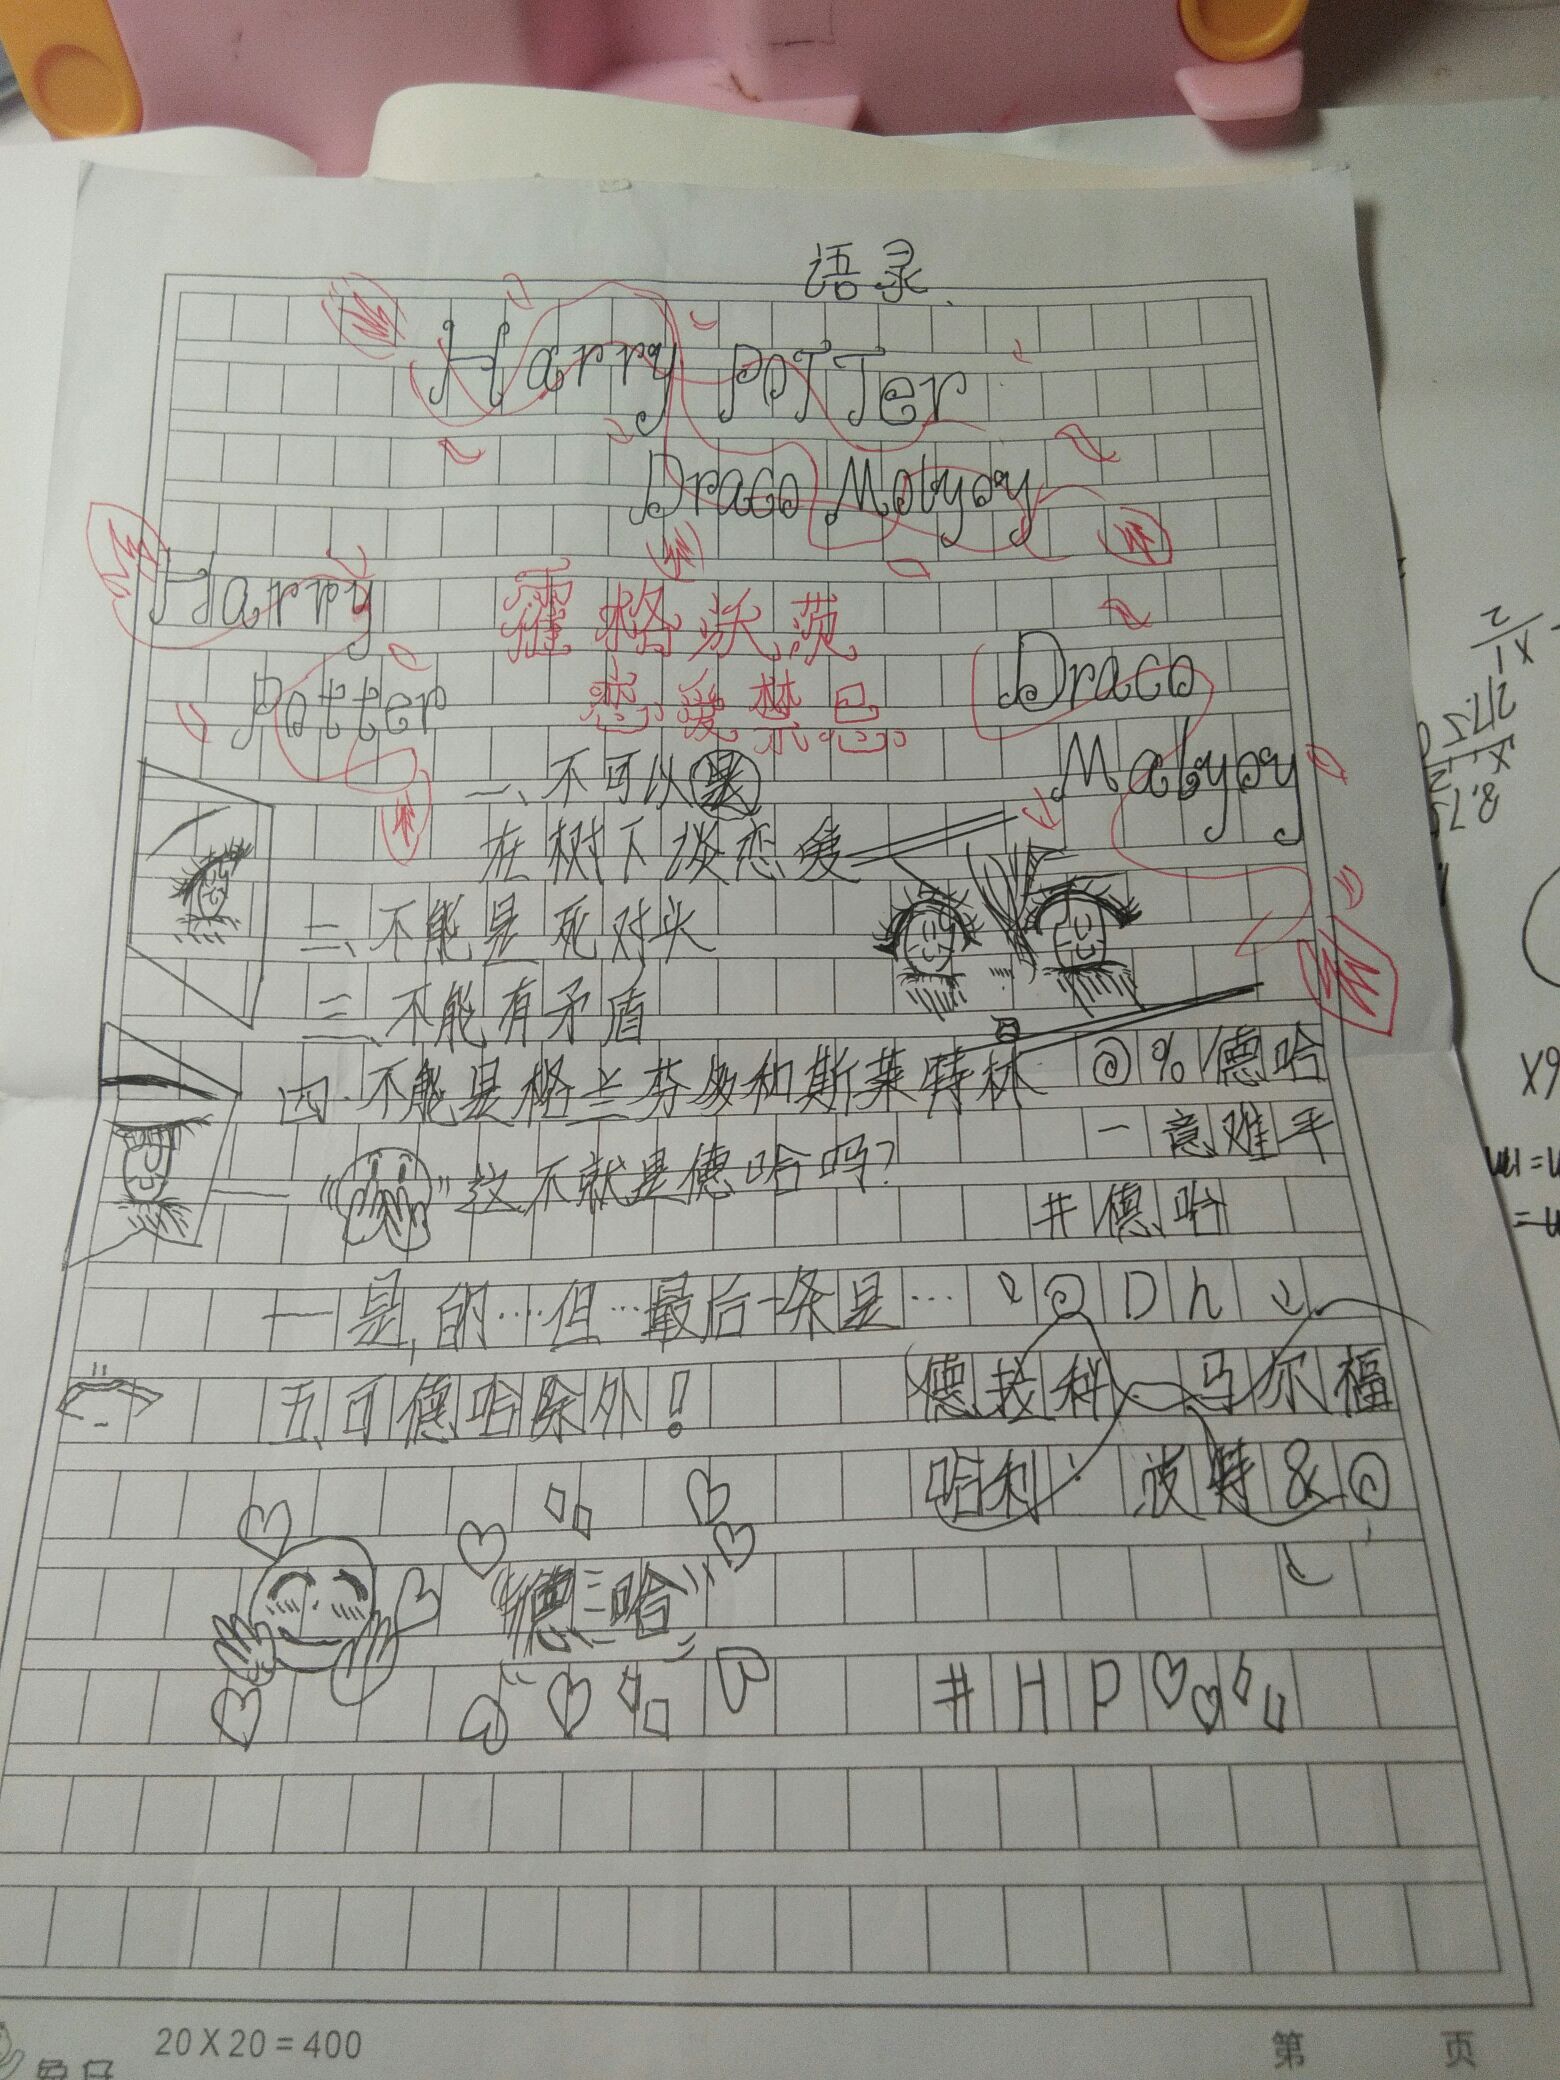 语录
Harry PoTTer
Draco Molyoy
Harry
霍格沃茨
Draco
Potter
恋爱禁忌
Malyoy
一、不可以
在树下谈恋爱
二、不能是死对头
三、不能有矛盾
四、不能是格兰芬多和斯莱特林
@%德哈
一意难平
"这不就是德哈吗?
#德哈
一是,的……但…最后一条是…
@Dh
五、可德哈除外!
德拉科一马尔福
哈利 波特&@
"德哈"
#HP
20X20=400
第 页